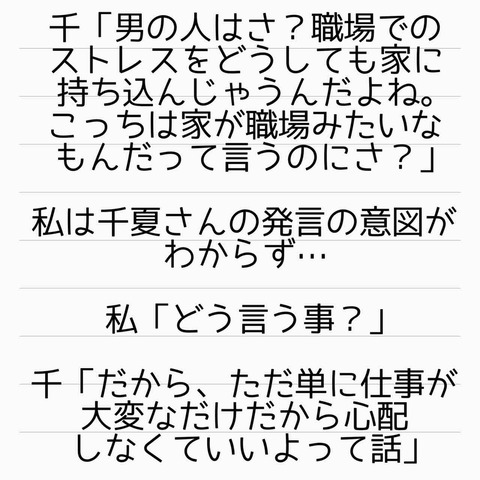 千「男の人はさ？職場での
ストレスをどうしても家に
持ち込んじゃうんだよね。
こっちは家が職場みたいな
もんだって言うのにさ？」
私は千夏さんの発言の意図が
わからず…
私「どう言う事？」
千「だから、ただ単に仕事が
大変なだけだから心配
しなくていいよって話」